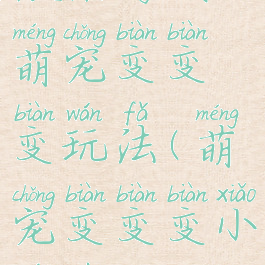 méng chǒng biàn biàn
萌宠变变
biàn wán fǎ méng
变玩法(萌
chǒng biàn biàn biàn xiǎo
宠变变变小